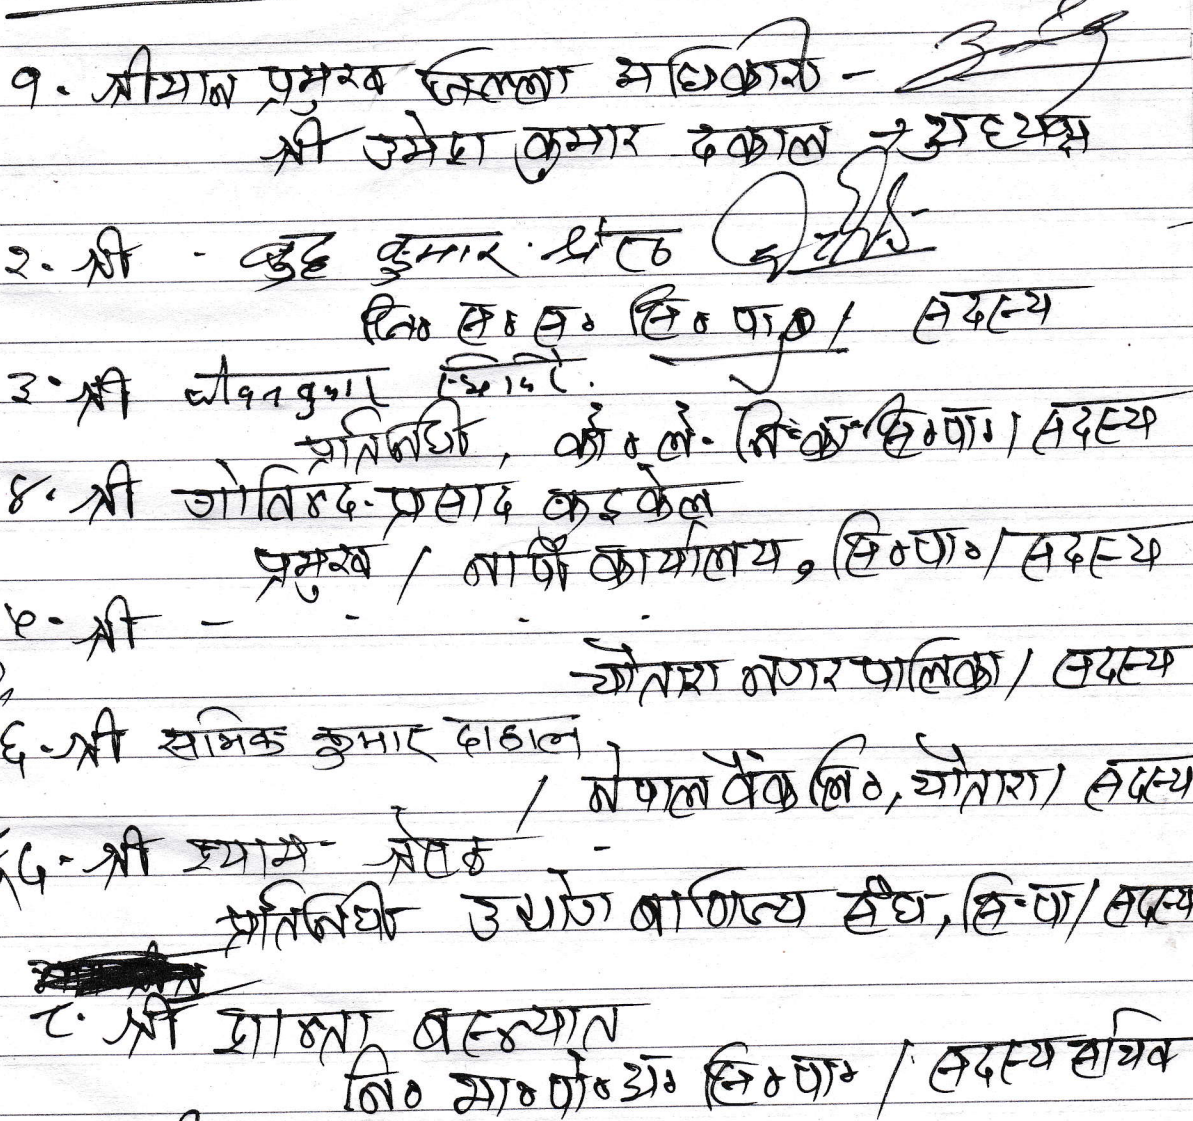 १. श्रीमान प्रमुख जिल्ला अधिकारी -
श्री उमेश कुमार ढकाल -> अध्यक्ष
२. श्री - बुद्ध कुमार श्रेष्ठ
जि० स० स० सि० पा० / सदस्य
३. श्री जीवनकुमार
प्रतिनिधी, को० ले. नि. का. सि०पा० / सदस्य
४. श्री गोविन्द प्रसाद कडकेल
प्रमुख / नापी कार्यालय, सि०पा० / सदस्य
५. श्री - - - -
चौतारा नगरपालिका / सदस्य
६. श्री समिक कुमार दाहाल
/ नेपाल बैंक लि०, चौतारा / सदस्य
७. श्री श्याम श्रेष्ठ -
प्रतिनिधी उद्योग बाणिज्य संघ, सि.पा / सदस्य
८. श्री शान्ता बस्न्यात
नि० मा० पो० अ० सि० पा० / सदस्य सचिव